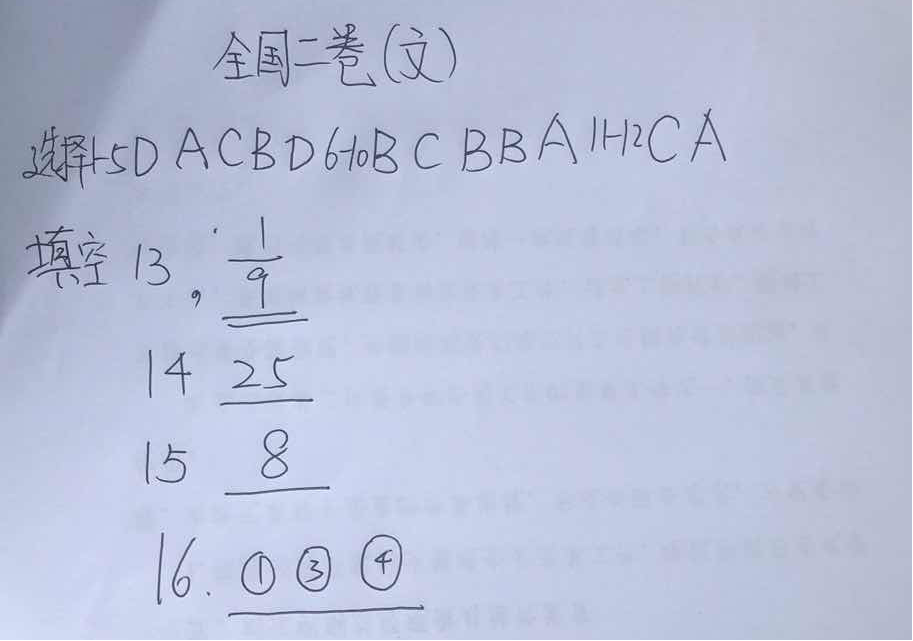 全国二卷(文)
选择1-5DACBD6-10BCBBA11-12CA
填空 13, 1/9
14 25
15 8
16. ①③④